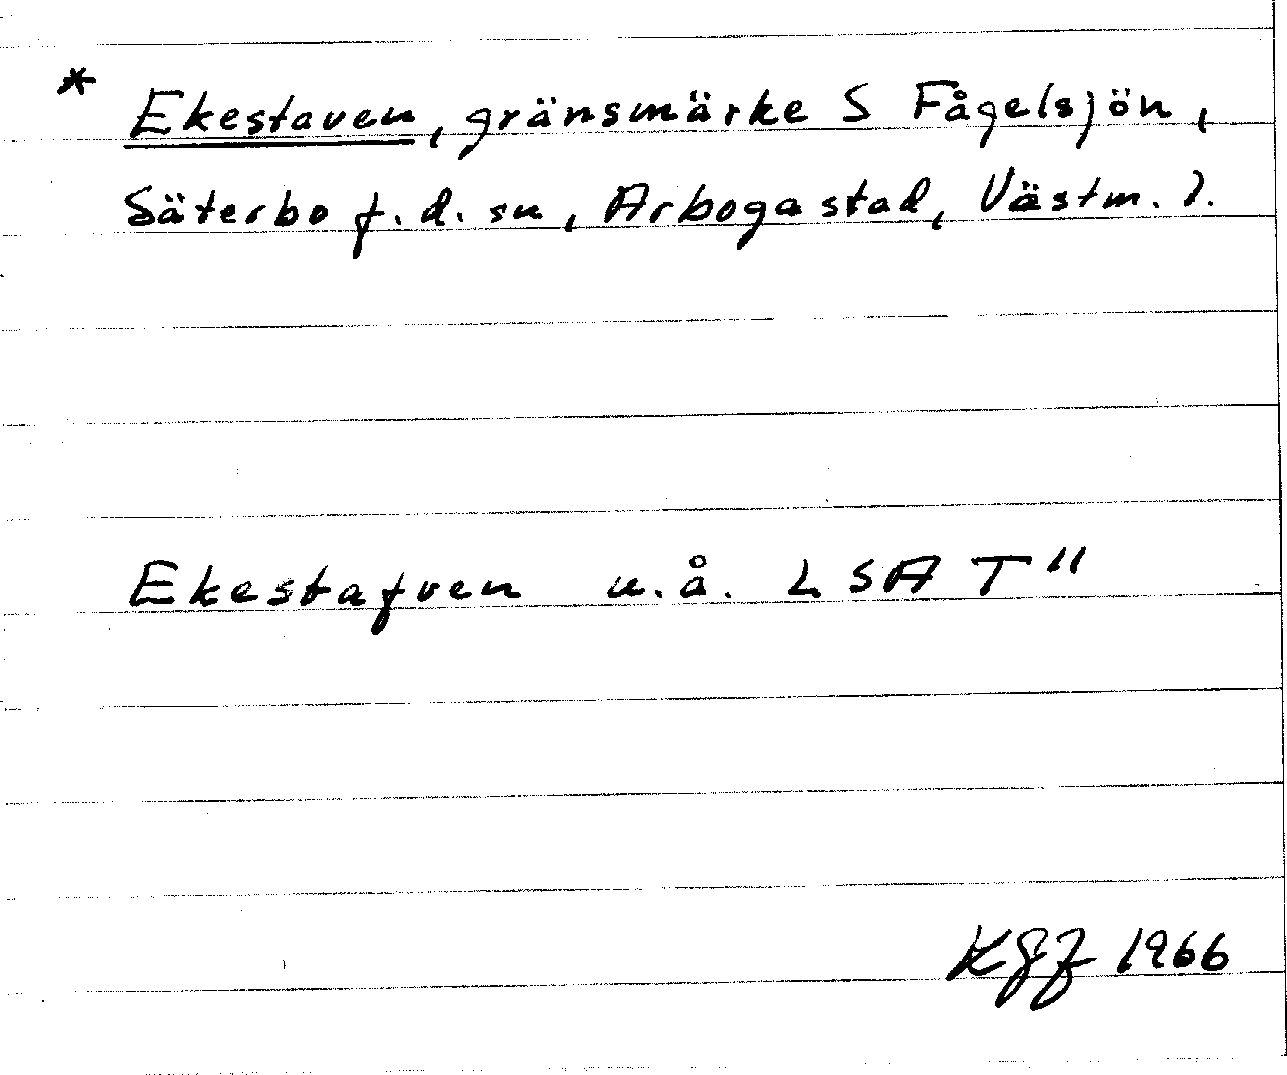 * Ekestaven, gränsmärke S Fågelsjön,
Säterbo f.d. sn, Arboga stad, Västm. l.
Ekestafven u.å. LSA T"
1966